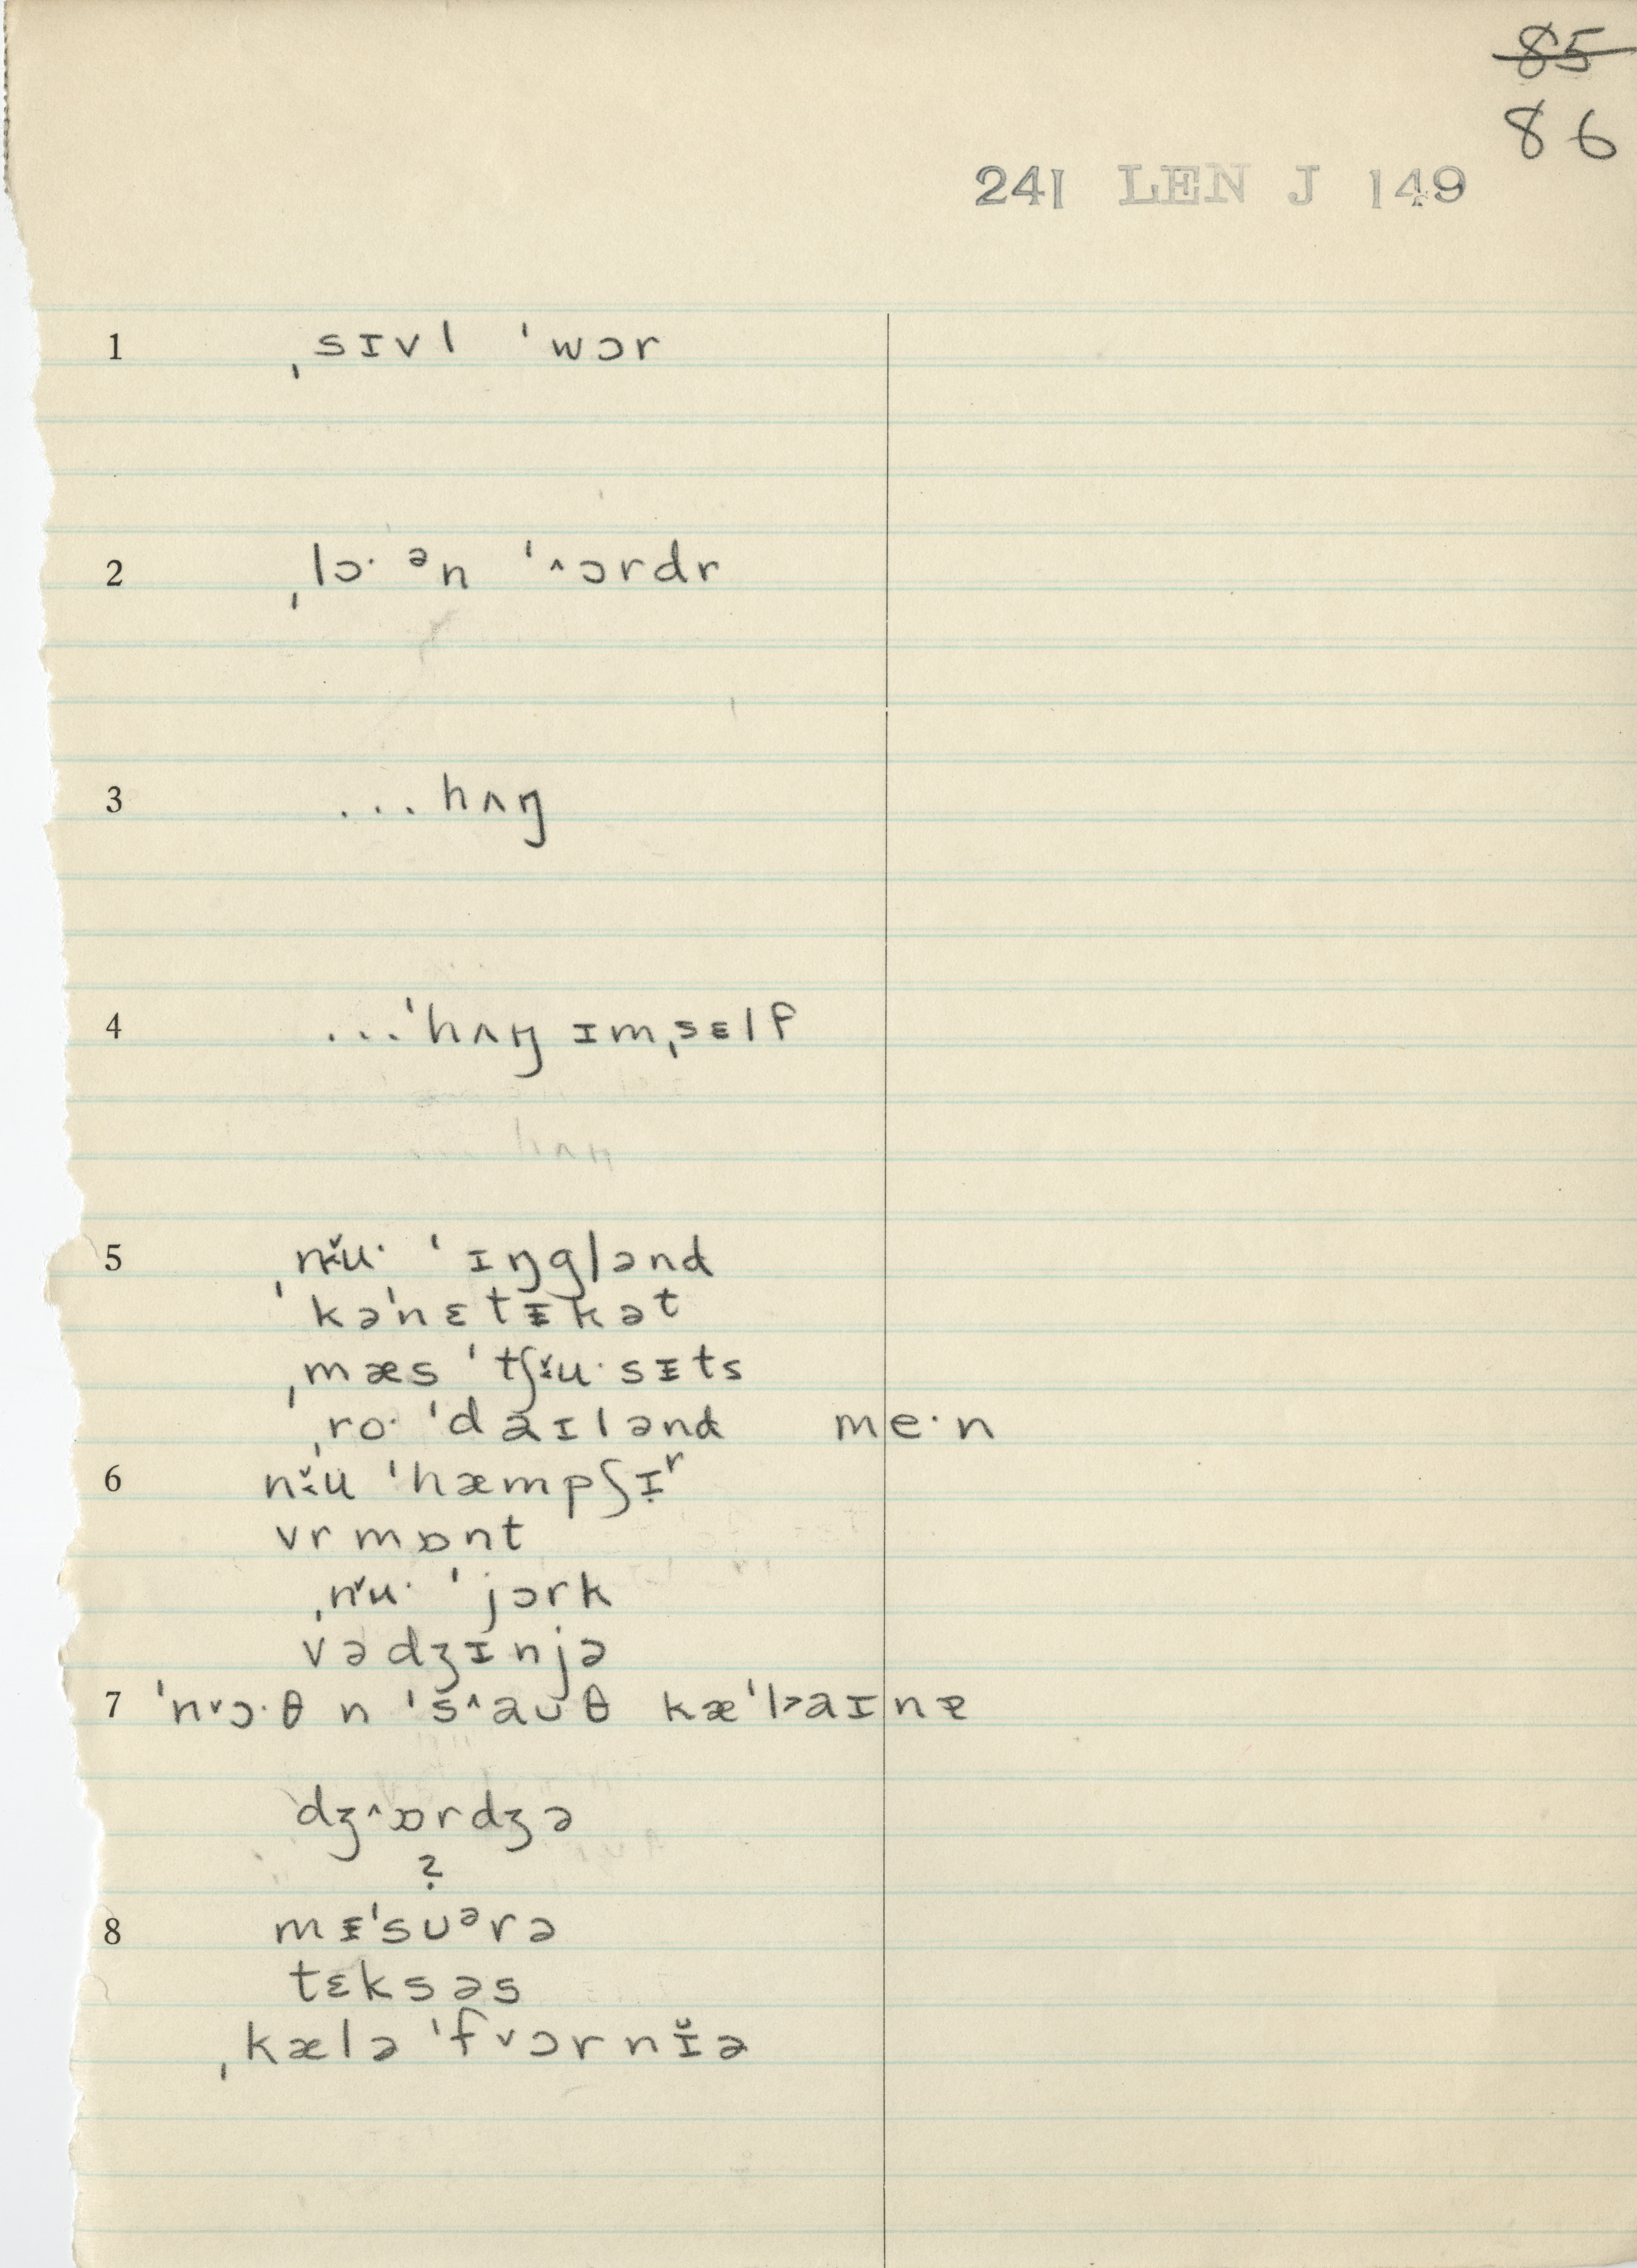 85
86
241 LEN J 149
1 ˌsɪvl ˈwɔr
2 ˌlɔ· ᵊn ˈ˄ɔrdr
3 ...hʌŋ
4 ...ˈhʌŋ ɪmˌsɛlf
5 ˌnɨ̆u· ˈɪŋglənd
kəˈnɛtɪkət
ˌmæs ˈtʃɨ̆u·sɪts
ˌro· ˈdaɪlənd me·n
6 nɨ̆u ˈhæmpʃɪʳ
vrmɒnt
ˌnɨ̆u· ˈjɔrk
vədʒɪnjə
7 ˈn˅ɔ·θ n ˈs˄aʊθ kæˈl˃aɪnə
dʒ˄ɒrdʒə
?
8 mɪˈsʊᵊrə
tɛksəs
ˌkælə ˈf˅ɔrnɪ̆ə